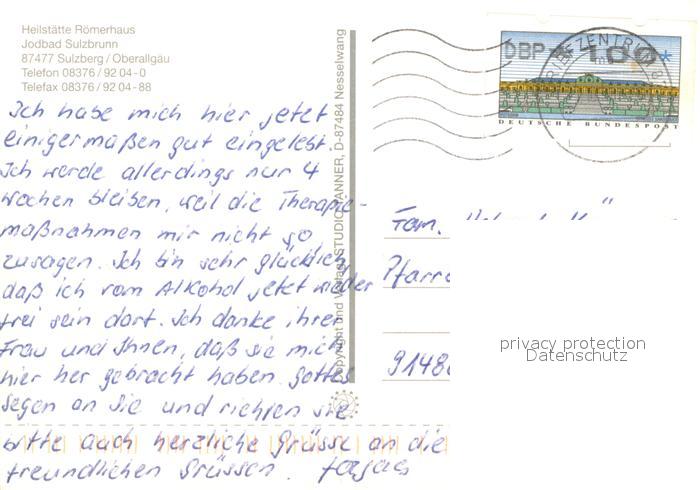 Heilstätte Römerhaus
Jodbad Sulzbrunn
87477 Sulzberg / Oberallgäu
Telefon 08376 / 92 04 - 0
Telefax 08376 / 92 04 - 88
Ich habe mich hier jetzt
einigermaßen gut eingelebt.
Ich werde allerdings nur 4
Wochen bleiben, weil die Therapie-
maßnahmen mir nicht so
zusagen. Ich bin sehr glücklich,
daß ich vom Alkohol jetzt wieder
frei sein darf. Ich danke ihrer
Frau und Ihnen, daß sie mich
hier her gebracht haben. Gottes
Segen an Sie und richten sie
bitte auch herzliche Grüsse an die
freundlichen Grüssen.
Copyright und Verlag: STUDIO TANNER, D-87484 Nesselwang
DBP * 100 *
DEUTSCHE BUNDESPOST
Fam.
Pfarr
9148
privacy protection
Datenschutz